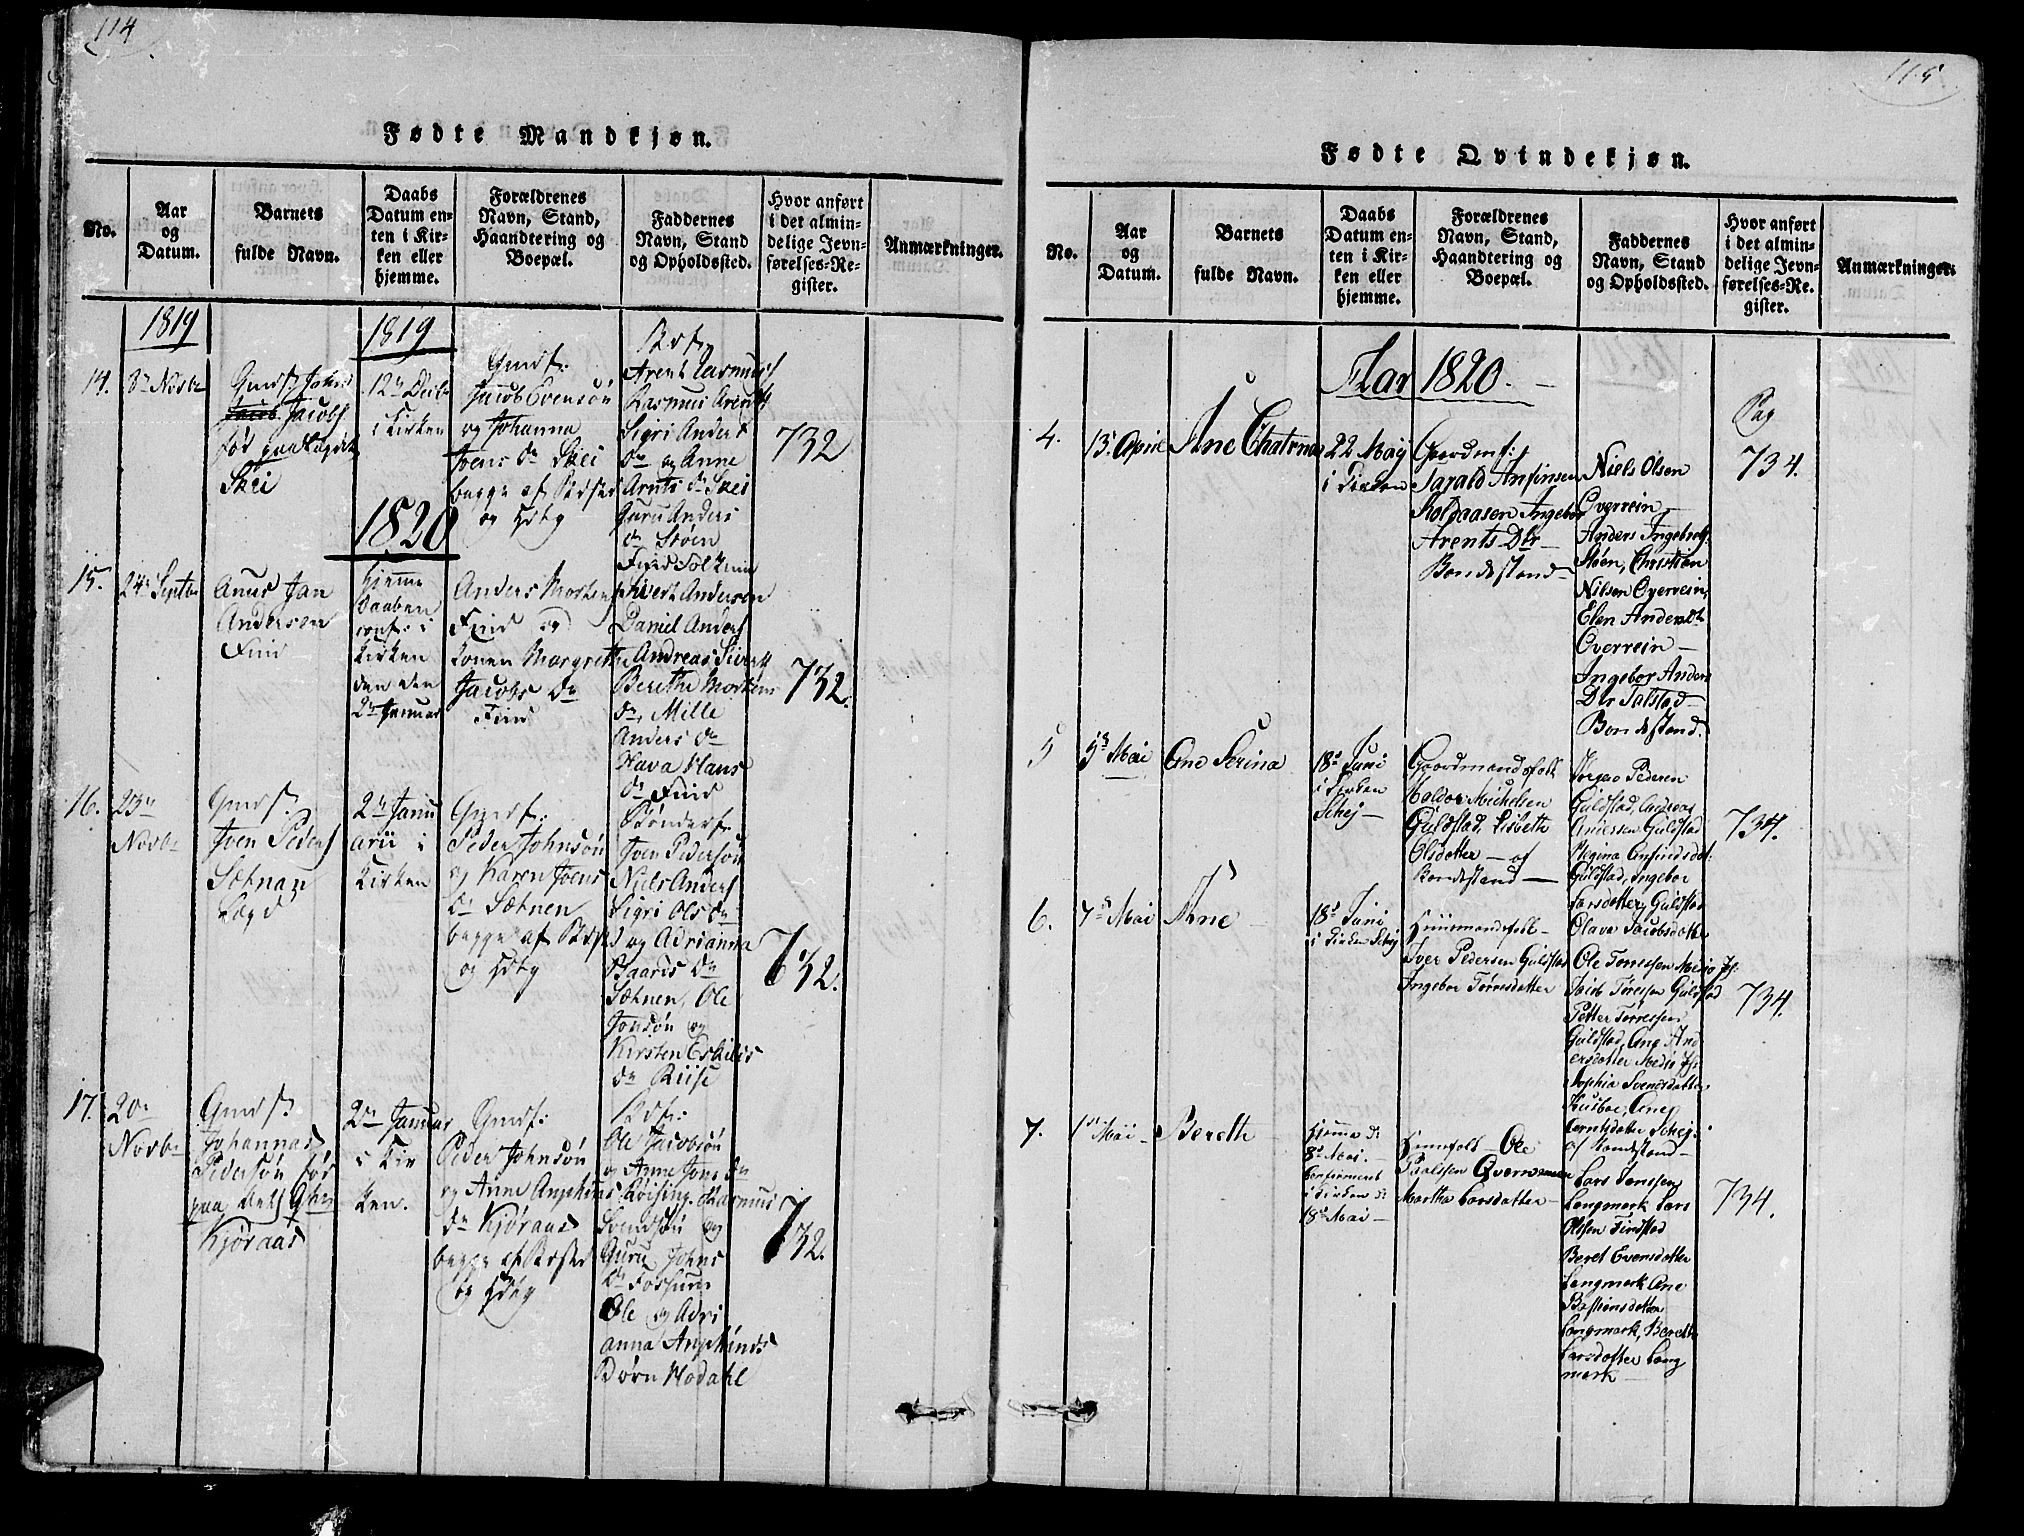 114
Fødte Mandkjøn.
No.
Aar
og
Datum.
Barnets
fulde Navn.
Daabs
Datum en-
ten i Kir-
ken eller
hjemme.
Forældrenes
Navn, Stand,
Haandtering og
Boepæl.
Faddernes
Navn, Stand
og Opholdssted.
Hvor anført
i det almin-
delige Jevn-
førelses-Re-
gister.
Anmærkninger.
1819
1819
14.
8de Novbr
Gmdsf. Johns
Jacobs
Skei
12te Decbr
i Kirken
Gmdf:
Jacob Evensøn
og Johanna
Joens Dr Skei
begge af
og
Arent Rasmus
Rasmus Arents
Sigri Anders
Dr og Anne
Arnts Dr Skei
Guru Anders
Dr Støen
732
1820
15.
24de Septbr
Anus Jan
Anderson
Fiin
hjemme
Daaben
conf: i
Kirken
den
2den Januar
Anders Mortens
og
konen Margrethe
Jacobs Dr
Siverts Anderson
Daniel Anders
Andreas Siverts
Berethe Mortens
Dr, Mille
Anders Dr
Hava Hans
Dr
732.
16.
23de
Novbr
Gmdsf.
Joen Peders
Sætnan
2den Janu
arii i
Kirken
Gmdf:
Peder Johnsøn
og Karen Joens
Dr Sætnen
begge af
og
Bønderf
Joen Pedersøn
Niels Anders
Sigri Ols Dr
og Adrianna
Baards Dr
Sætnen, Ole
Jonsøn og
Kirsten Eskilds
Dr Riise
732.
17.
20de
Novbr
Gmdsf.
Johannas
Pedersøn før
paa
Kjøraas
2den Januar
i Kir
ken.
Gmdf:
Peder Johnsøn
og Anne Anphins
Dr Kjøraas
begge af
og
Ole Jacobsøn
og Anne Jons Dr
Røising. Rasmus
Svendsøn og
Guru Johns
Dr Fossum
Ole og Adri
anna Anphinds
Børn Hodahl
732.
115
Fødte Qvindekjøn.
No.
Aar
og
Datum.
Barnets
fulde Navn.
Daabs
Datum en-
ten i Kir-
ken eller
hjemme.
Forældrenes
Navn, Stand,
Haandtering og
Boepæl.
Faddernes
Navn, Stand
og Opholdssted.
Hvor anført
i det almin-
delige Jevn-
førelses-Re-
gister.
Anmærkninger.
Aar 1820.
4.
13. April
Ane Chatrina
22 Maj
i Kirken
Gaardmf:
Tarald Anfinsen
Ingebor
Arents Dtr
Bondestand
Niels Olsen
Overrein
Anders Ingebrets.
Støen, Christian
Nilsen Overrein,
Elen Andersdtr
Overrein
Ingebor Anders
Dtr Talstad
Bondestand.
Pag
734.
5
5te Mai
Ane Serina
18de Juni
i Kirken
Schej
Gaardmandsfolk
Haldor Michelsen
Guldstad, Lisbeth
Olsdatter af
Bondestand
Pedersen
Guldstad, Andreas
Andersen Guldstad
Regina Anfindsdat:
Guldstad, Ingebor
Larsdatter, Guldstad
Olava Jacobsdatter
734.
6.
7de Mai
Ane
18de Juni
i Kirken Schej
Huusmandsfolk
Iver Pedersen Guldstad
Ingebor Torresdatter
Ole Toresen
Jacob Toresen Guldstad
Petter Torresen
Guldstad, Ane An
ersdatter
Sophia Svendsdatter
Husboe, Ane
Arntsdatter Schej
af Bondestand
734.
7.
1ste Mai
Bereth
Hjemme D:
8de Mai.
Confirmeret
i Kirken d:
18de Mai
Huusfolk Ole
Paalsen
Martha Larsdatter
Lars Larssen
Langmark Lars
Olsen Findstad
Beret Evensdatter
Langmark Ane
Bastiansdatter
Langmark, Bereth
Larsdatter Lang
mark
734.